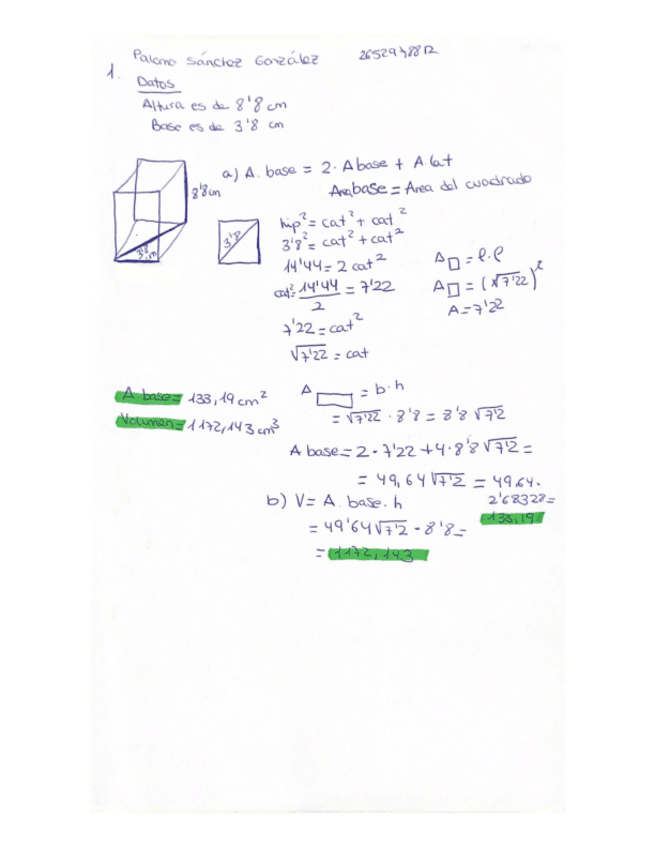 Paloma Sánchez González
1.
Datos
Altura es de 8'8 cm
Base es de 3'8 cm
a) A. base = 2. Abase + A lat
Areabase = Area del cuadrado
8'8 cm
3'8 cm
3'8
hip² = cat² + cat²
3'8² = cat² + cat²
14'44 = 2 cat²
cat² = 14'44 / 2 = 7'22
7'22 = cat²
√7'22 = cat
A□ = l.l
A□ = (√7'22)²
A = 7'22
A base = 133,19 cm²
Volumen = 1172,143 cm³
A▭ = b.h
= √7'22 . 8'8 = 8'8 √7'2
A base = 2 . 7'22 + 4 . 8'8 √7'2 =
= 49,64 √7'2 = 49,64.
2'68328 =
133,19
b) V = A. base . h
= 49'64 √7'2 . 8'8 =
= 1172,143